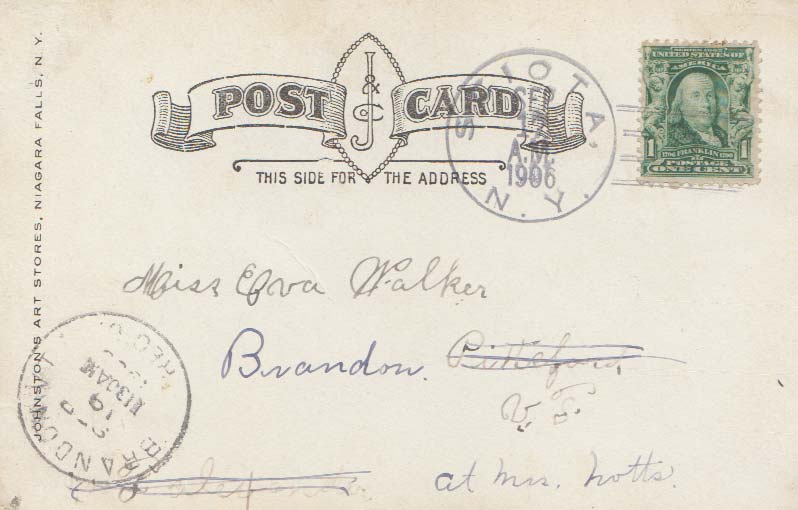 POST CARD
J & Co
THIS SIDE FOR THE ADDRESS
SCIOTA, N.Y.
SEP
A.M.
1906
SERIES 1902
UNITED STATES OF
AMERICA
1 FRANKLIN 1
POSTAGE
ONE CENT
JOHNSTON'S ART STORES, NIAGARA FALLS, N.Y.
Miss Eva Walker
Brandon. Pittsford
Vt.
at Mrs. Notts.
BRANDON
SEP
19
1130AM
REC'D.